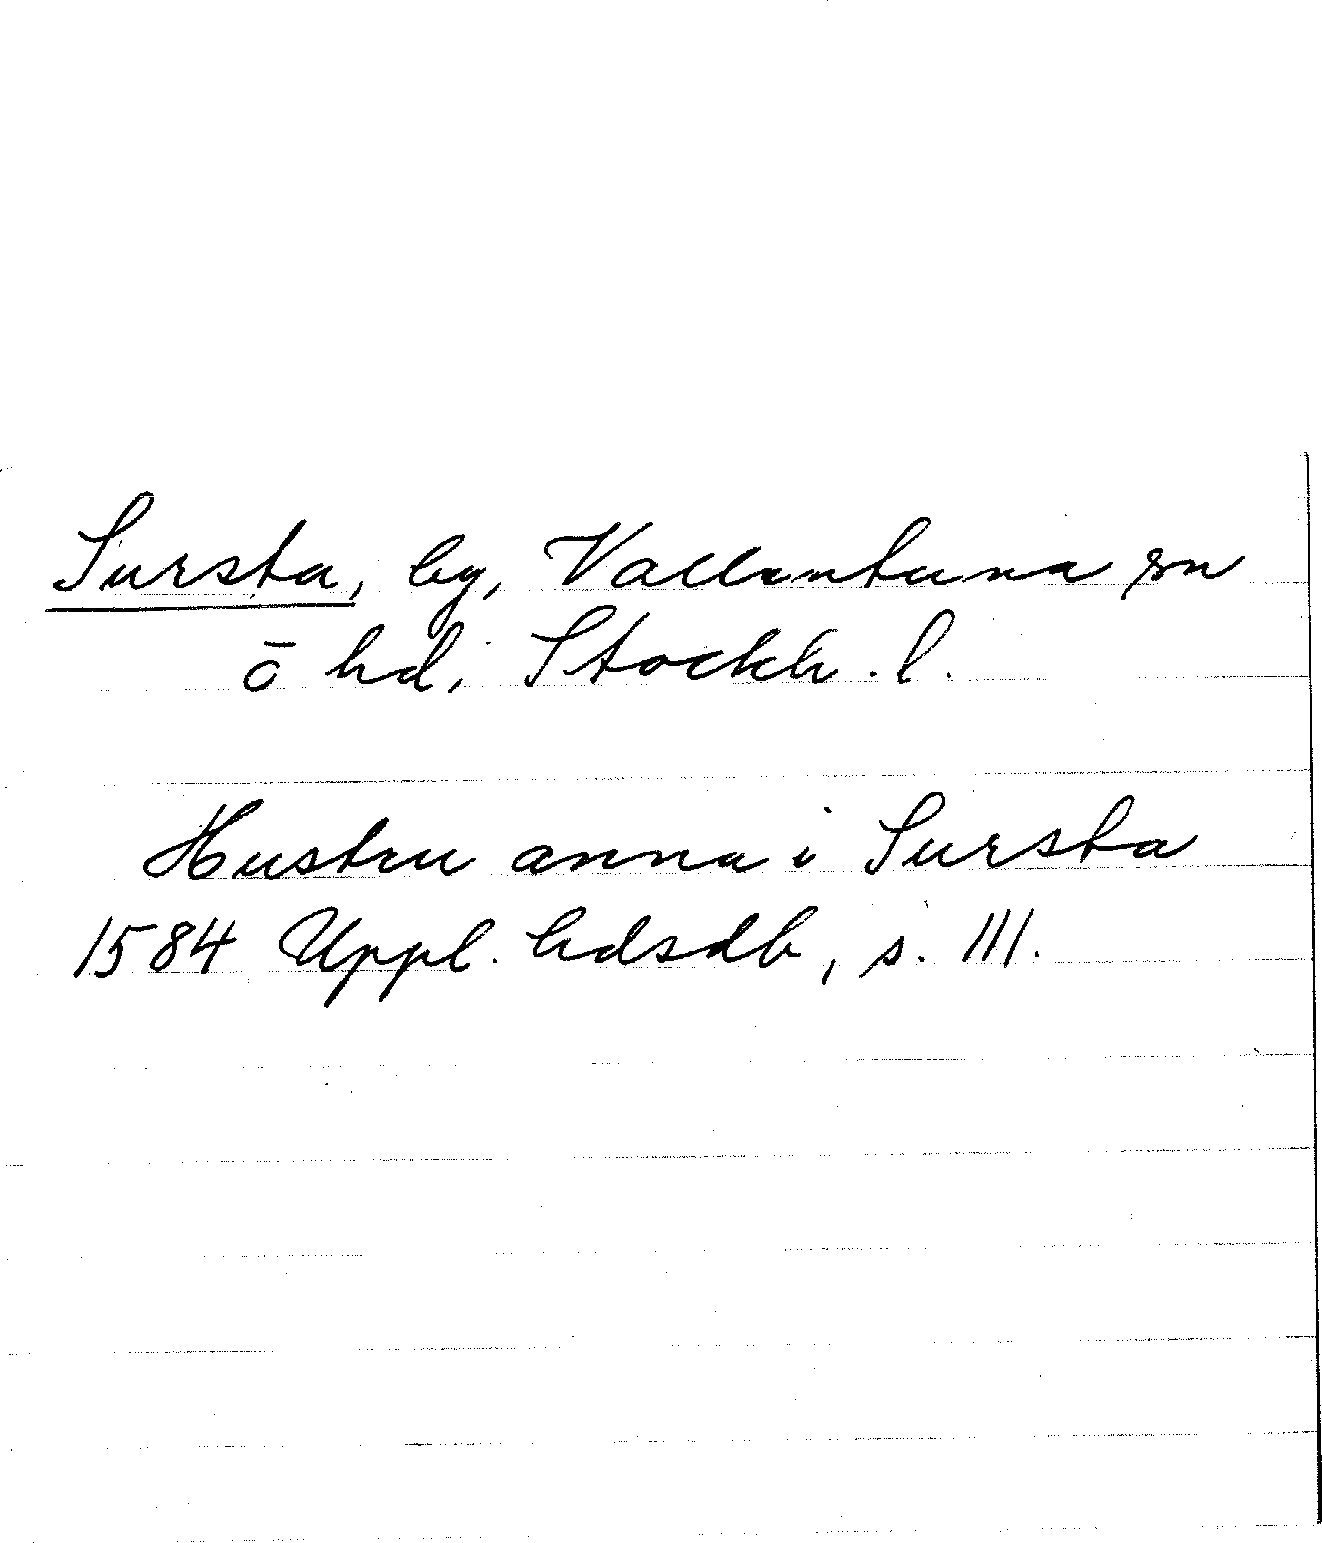 Sursta, by, Vallentuna sn
o̅ hd, Stockh. l.
Hustru anna i Sursta
1584 Uppl. hdsdb, s. 111.